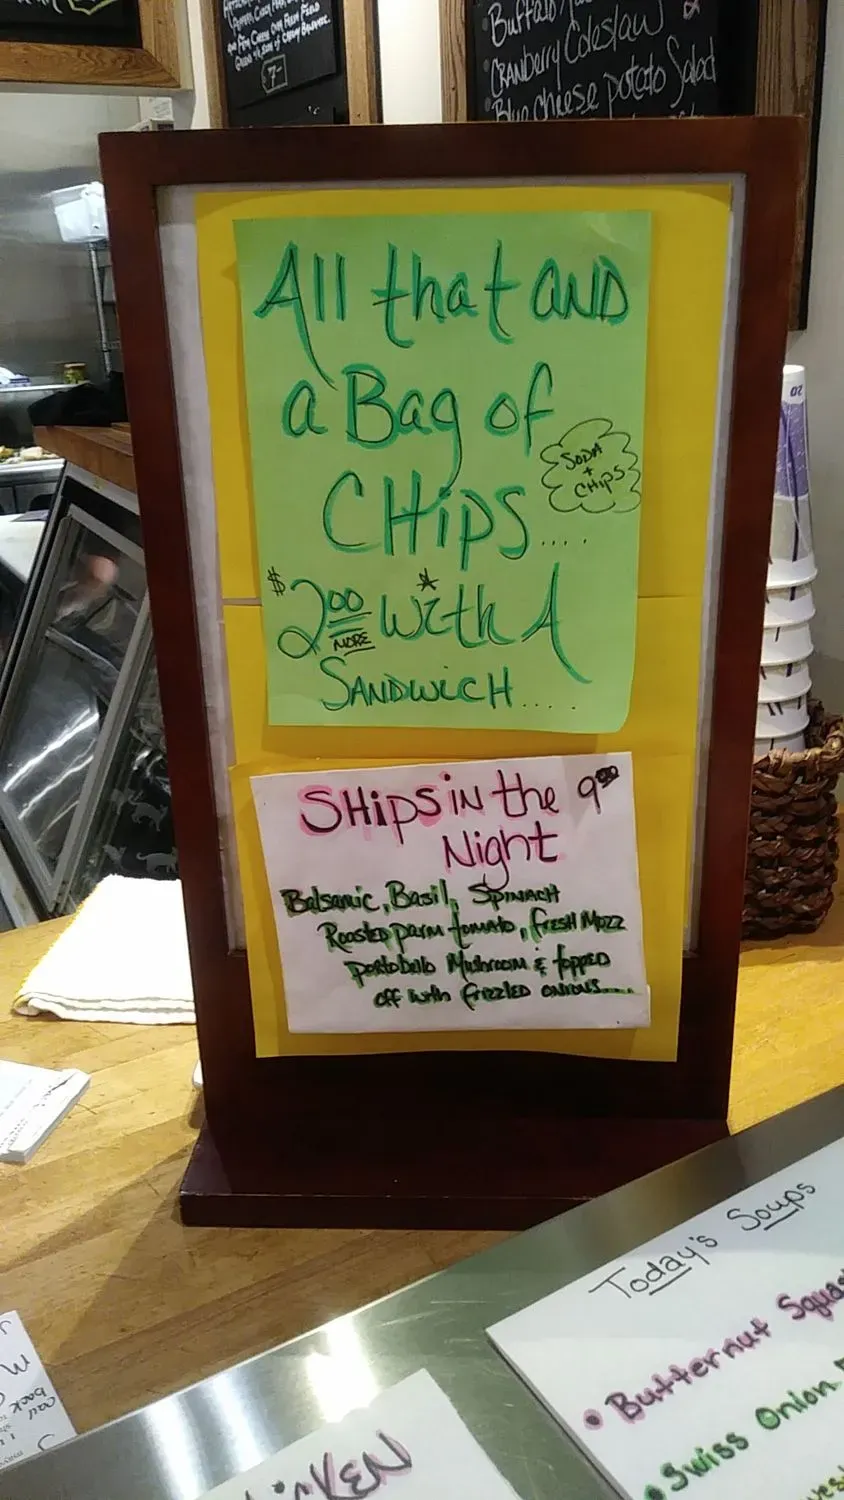 Buffalo
CRANberry Coleslaw
Blue cheese potato Salad
7-
All that AND
a Bag of
CHiPS....
SODA
+
CHIPS
$2.00 MORE with A
SANDWICH.....
SHips iN the 9.00
Night
Balsamic, Basil, SPINACH
Roasted parm tomato, fresh Mozz
portobello Mushroom & topped
off with frizzled onions.....
Today's Soups
• Butternut Squas
• Swiss Onion
CKEN